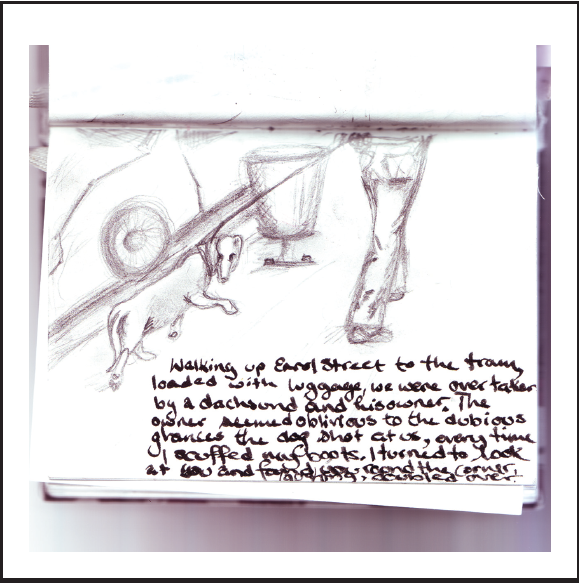 Walking up Errol Street to the tram,
loaded with luggage, we were overtaken
by a dachsund and his owner. The
owner seemed oblivious to the dubious
glances the dog shot at us, every time
I scuffed my boots. I turned to look
at you and found you round the corner,
laughing, doubled over.